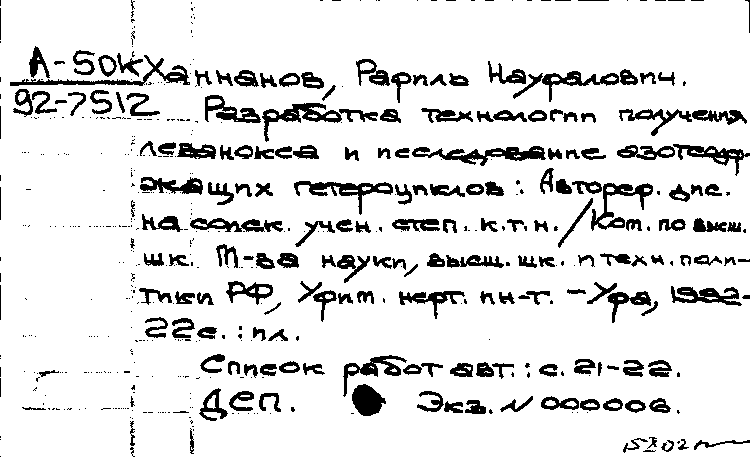 А-50К Ханнанов, Рафиль Науфалович.
92-7512 Разработка технологии получения
леванокса и исследование азотсодер-
жащих гетероциклов : Автореф. дис.
на соиск. учен. степ. к.т.н. / Ком. по высш.
шк. М-ва науки, высш. шк. и техн. поли-
тики РФ, Уфим. нефт. ин-т. – Уфа, 1992.-
22с. : ил.
Список работ авт. : с. 21-22.
ДСП. Экз. N 000006.